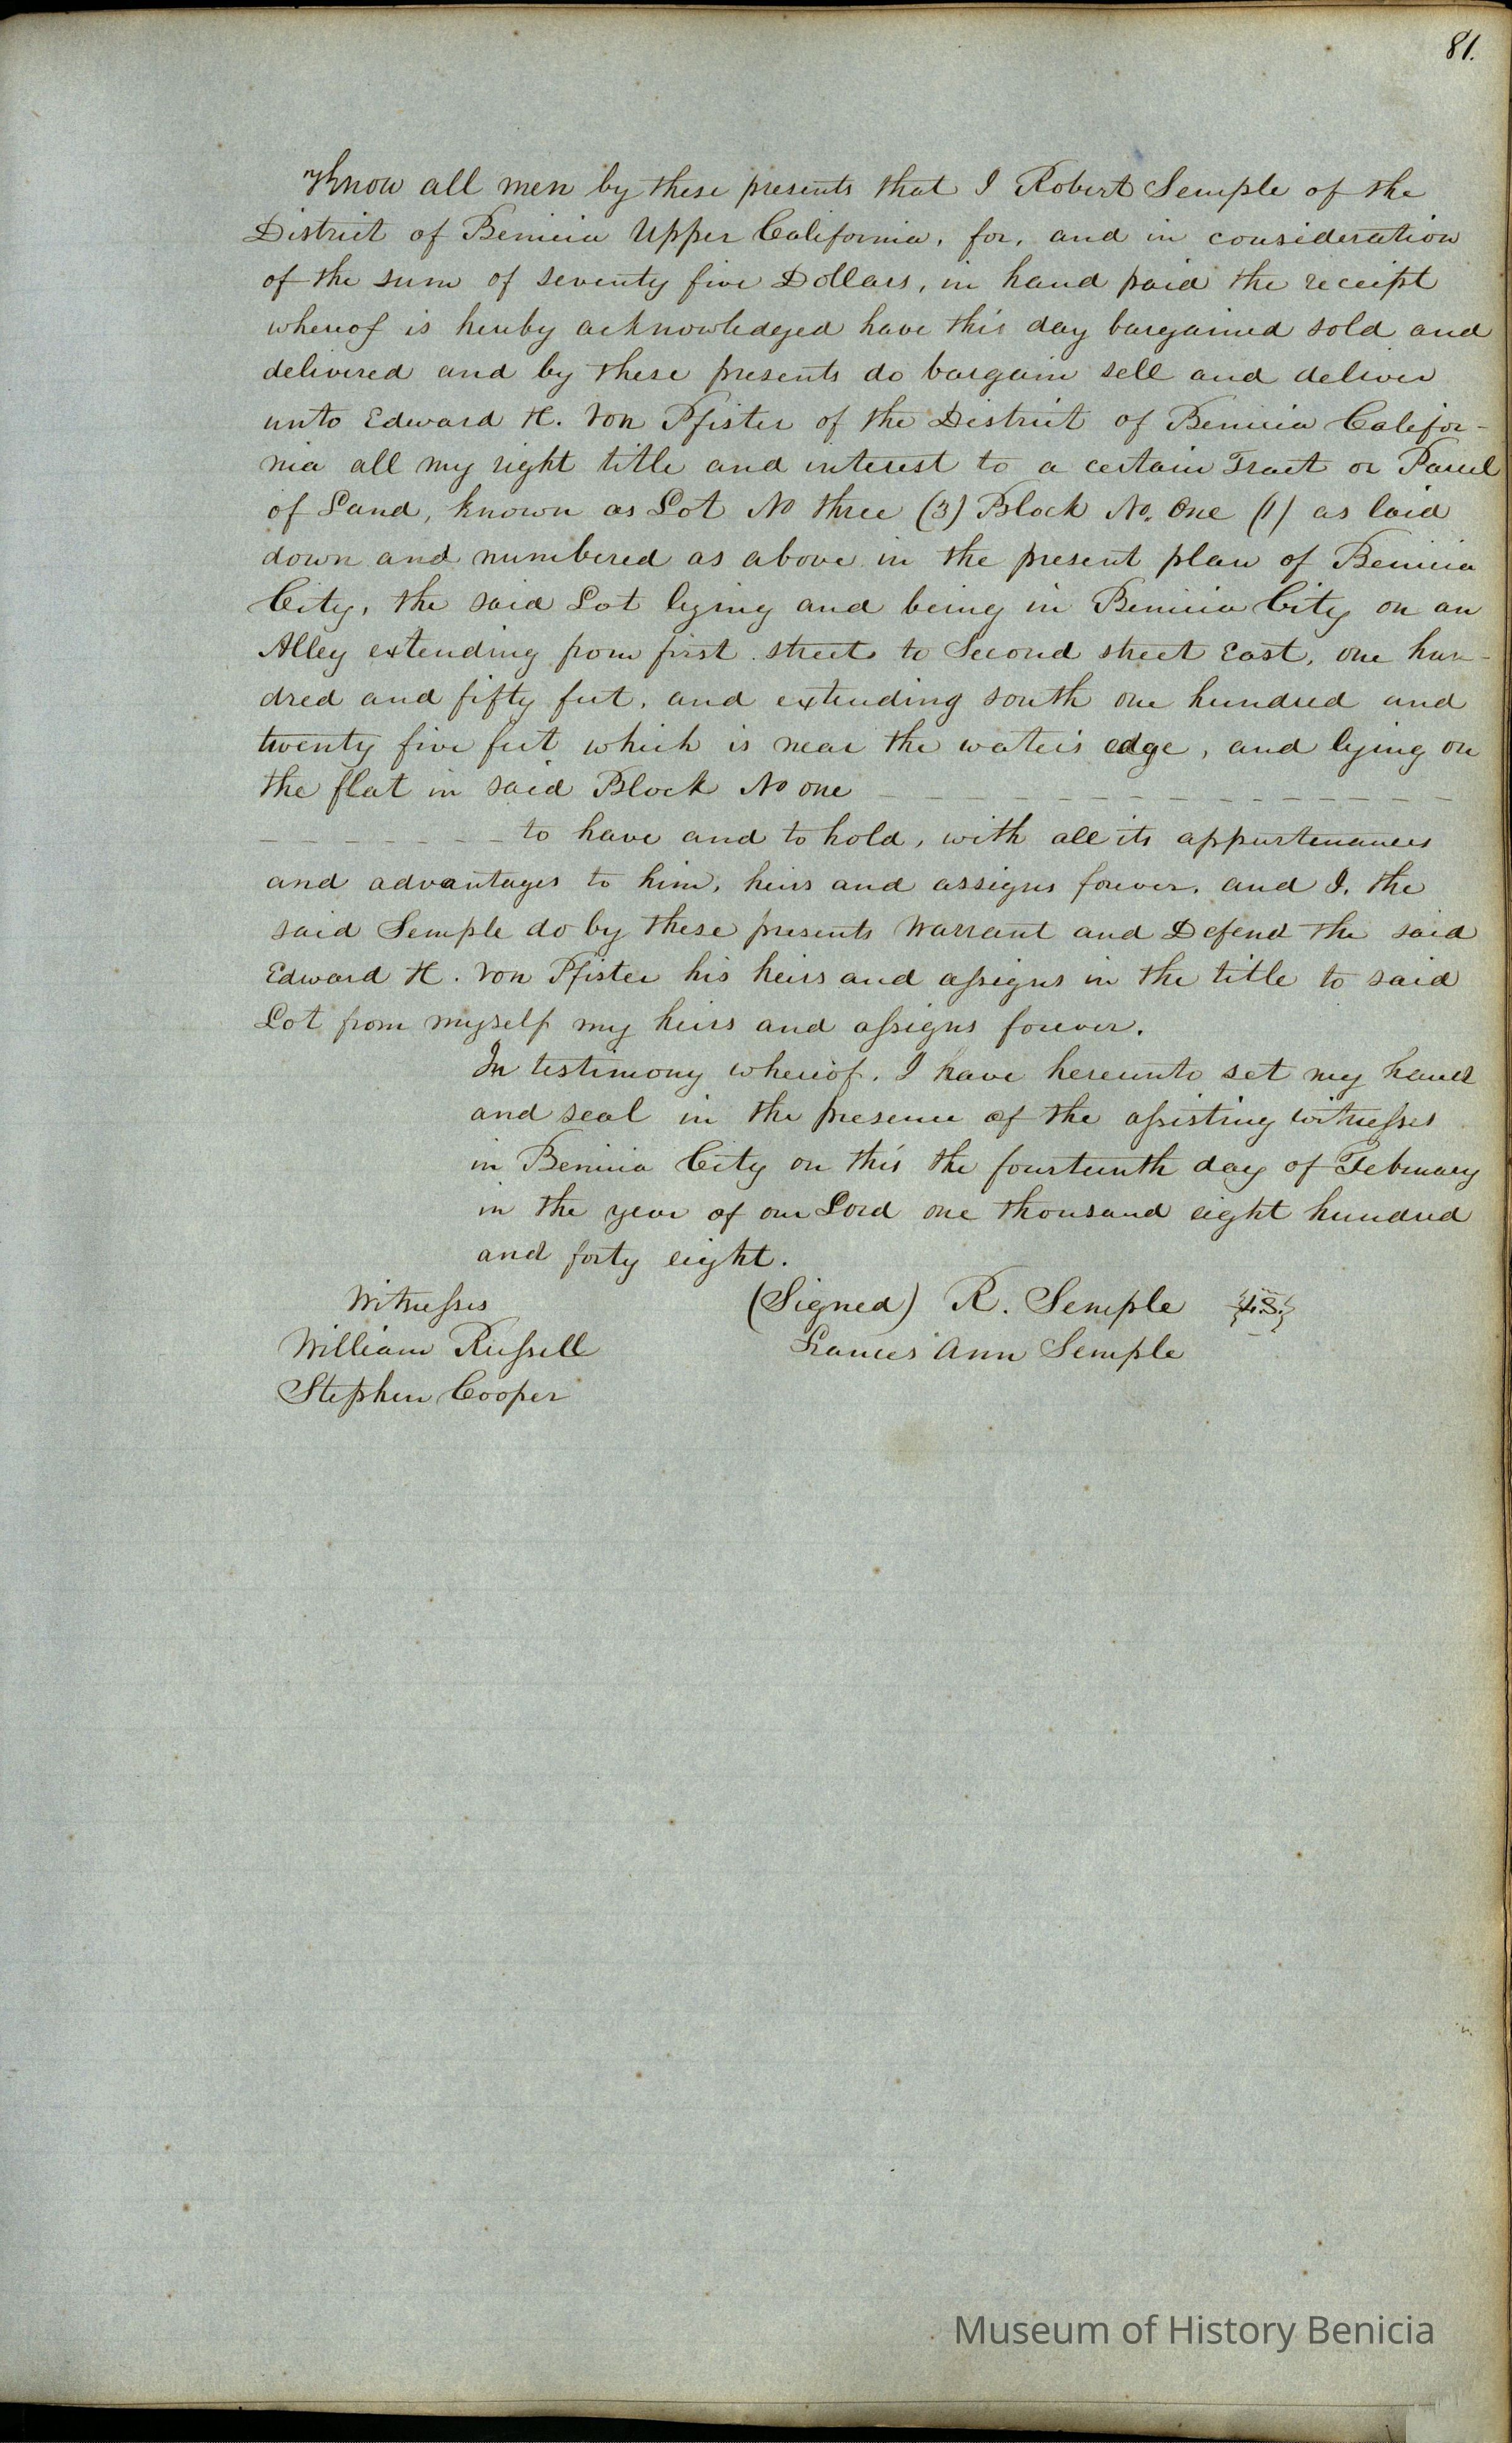 81.
Know all men by these presents that I Robert Semple of the
District of Benicia Upper California, for, and in consideration
of the sum of seventy five Dollars, in hand paid the receipt
whereof is hereby acknowledged have this day bargained sold and
delivered and by these presents do bargain sell and deliver
unto Edward H. Von Pfister of the District of Benicia Califor-
nia all my right title and interest to a certain Tract or Parcel
of Land, known as Lot No three (3) Block No. One (1) as laid
down and numbered as above in the present plan of Benicia
City, the said Lot lying and being in Benicia City on an
Alley extending from first street to Second street East, one hun-
dred and fifty feet, and extending south one hundred and
twenty five feet which is near the water's edge, and lying on
the flat in said Block No one
to have and to hold, with all its appurtenances
and advantages to him, heirs and assigns forever, and I, the
said Semple do by these presents Warrant and Defend the said
Edward H. Von Pfister his heirs and assigns in the title to said
Lot from myself my heirs and assigns forever.
In testimony whereof, I have hereunto set my hand
and seal in the presence of the assisting witnesses
in Benicia City on this the fourteenth day of February
in the year of our Lord one thousand eight hundred
and forty eight.
Witnesses (Signed) R. Semple {L.S.}
William Russell Frances Ann Semple
Stephen Cooper
Museum of History Benicia